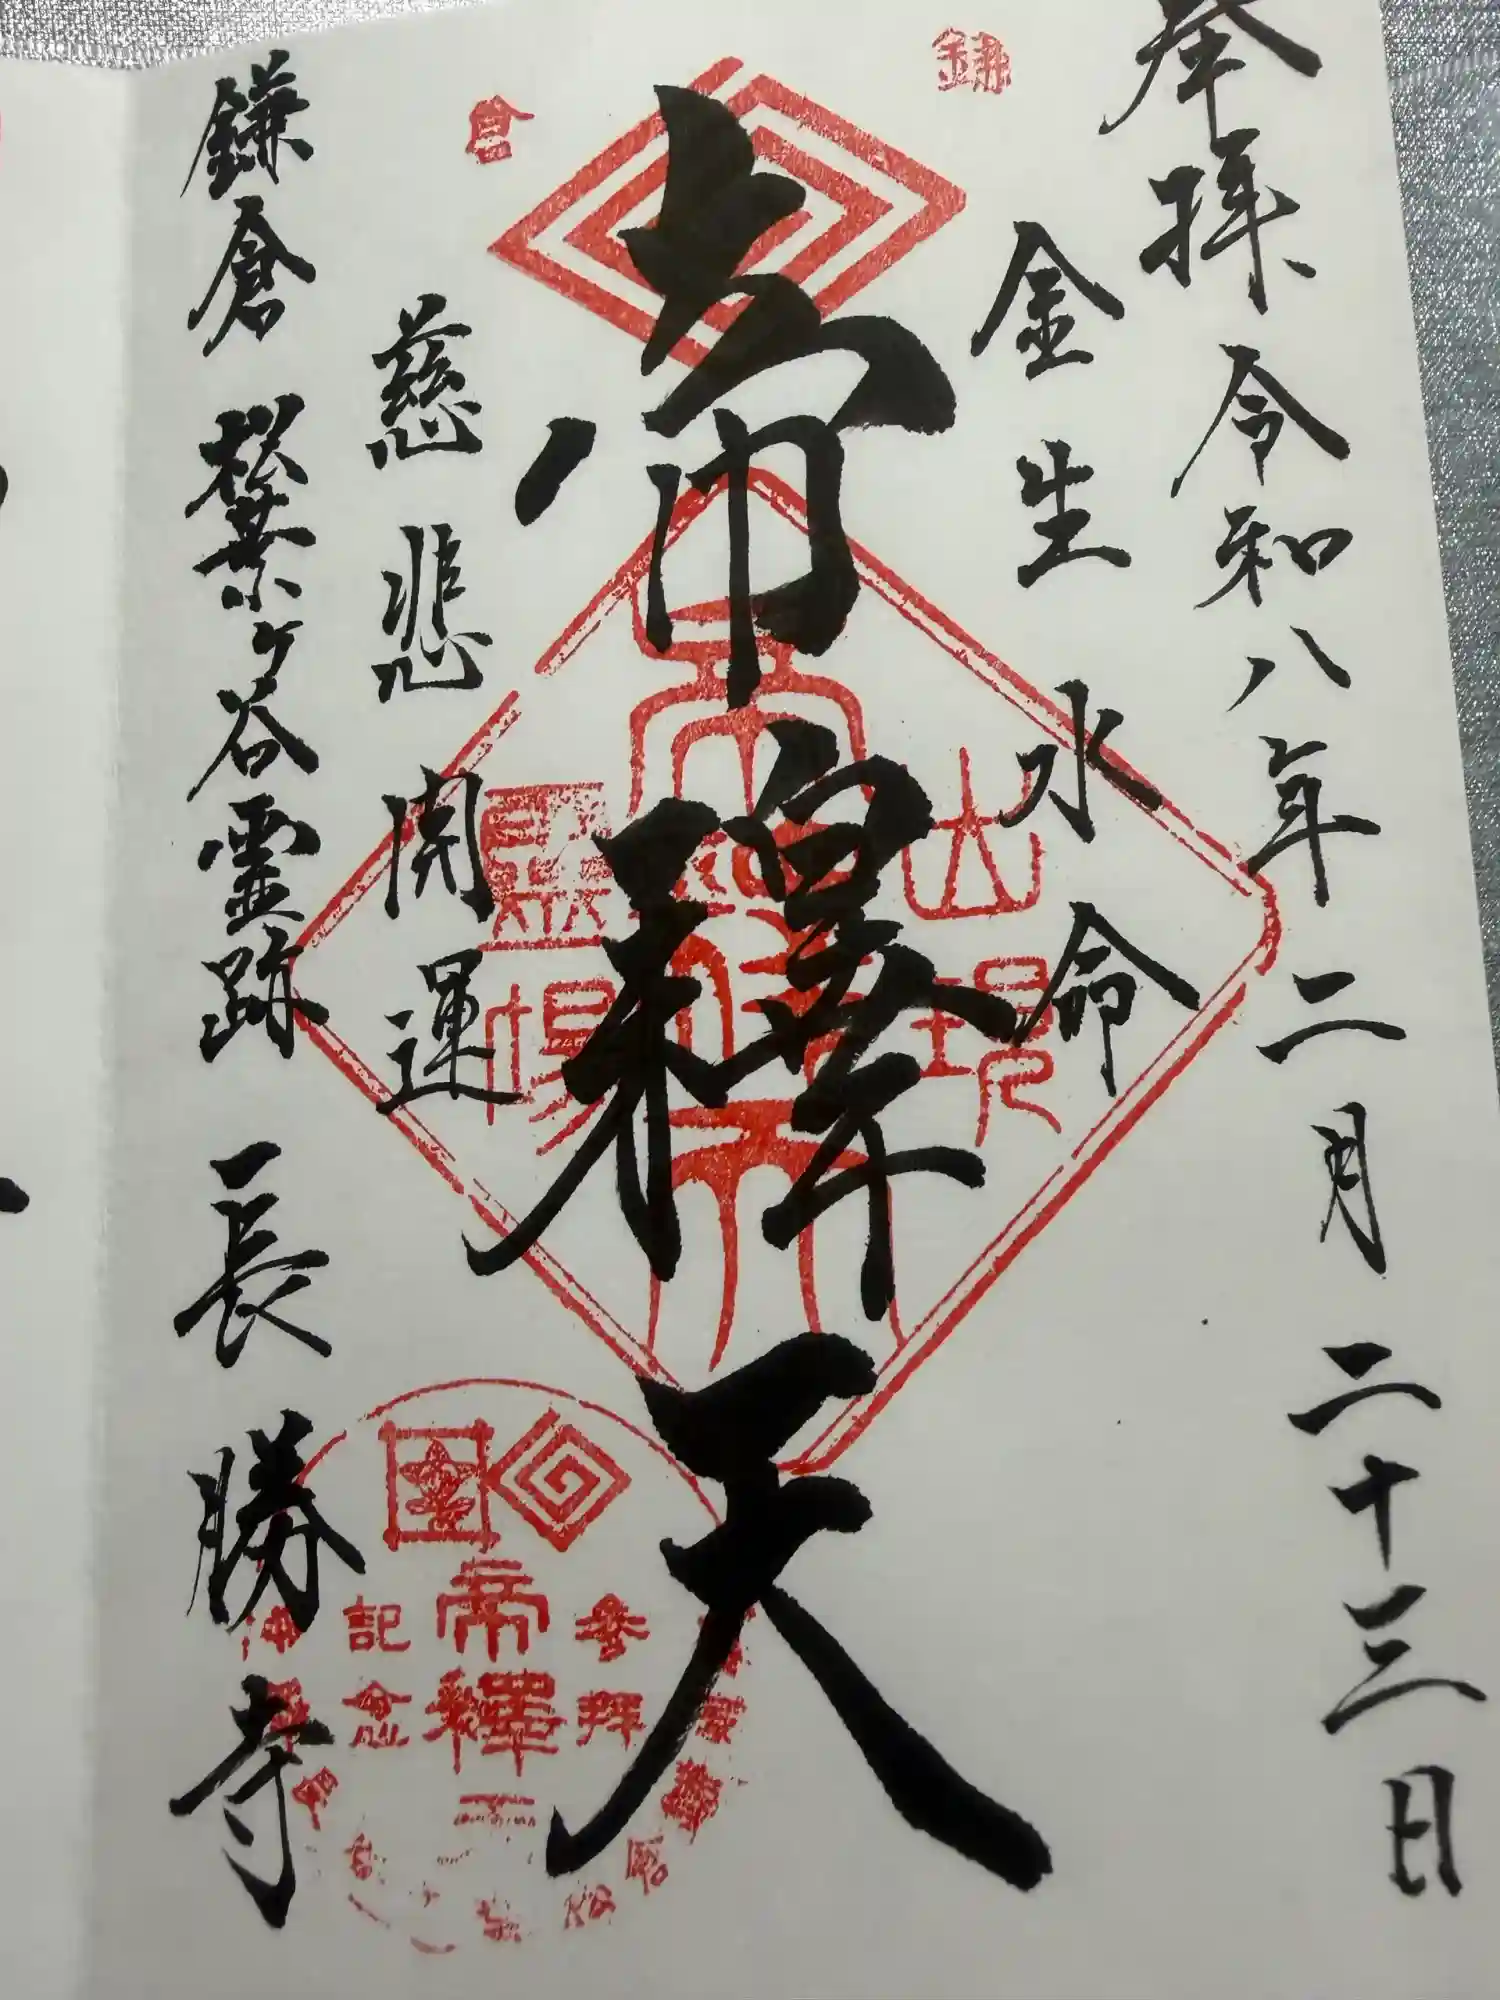 奉拝 令和八年二月二十三日
金生水命
帝釋天
慈悲開運
鎌倉 松葉ヶ谷霊跡 長勝寺
鎌
倉
帝釋天
霊場
参拝
帝釋天
記念